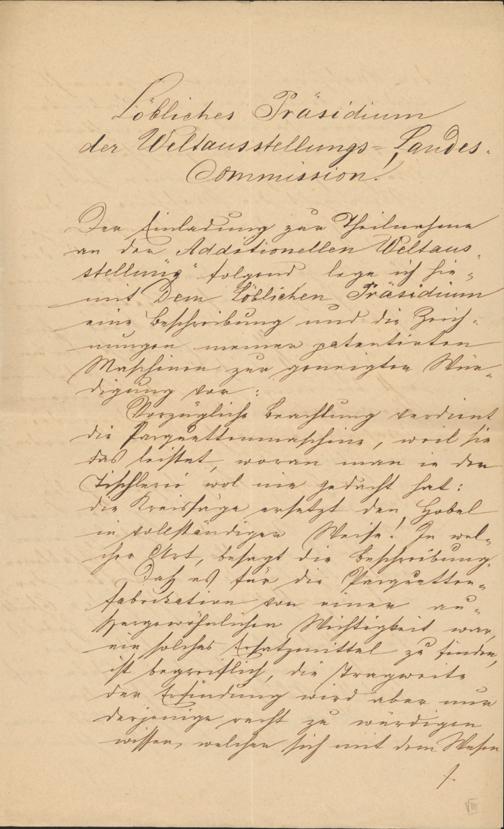 Löbliches Präsidium
der Weltausstellungs-Landes-
Commission!
Der Einladung zur Theilnahme
an der Additionellen Weltaus-
stellung folgend lege ich hie-
mit Dem Löblichen Präsidium
eine Beschreibung und die Zeich-
nungen meiner patentirten
Maschinen zur geneigten Wür-
digung vor:
Vorzügliche Beachtung verdient
die Parquettenmaschine, weil sie
das leistet, woran man in der
Tischlerei wol nie gedacht hat:
die Kreissäge ersetzt den Hobel
in vollständiger Weise! In wel-
cher Art, besagt die Beschreibung.
Daß es für die Parquetten-
fabrikation von einer au-
ßergewöhnlichen Wichtigkeit war
ein solches Ersatzmittel zu finden,
ist begreiflich, die Tragweite
der Erfindung wird aber nur
derjenige recht zu würdigen
wissen, welcher sich mit dem Wesen